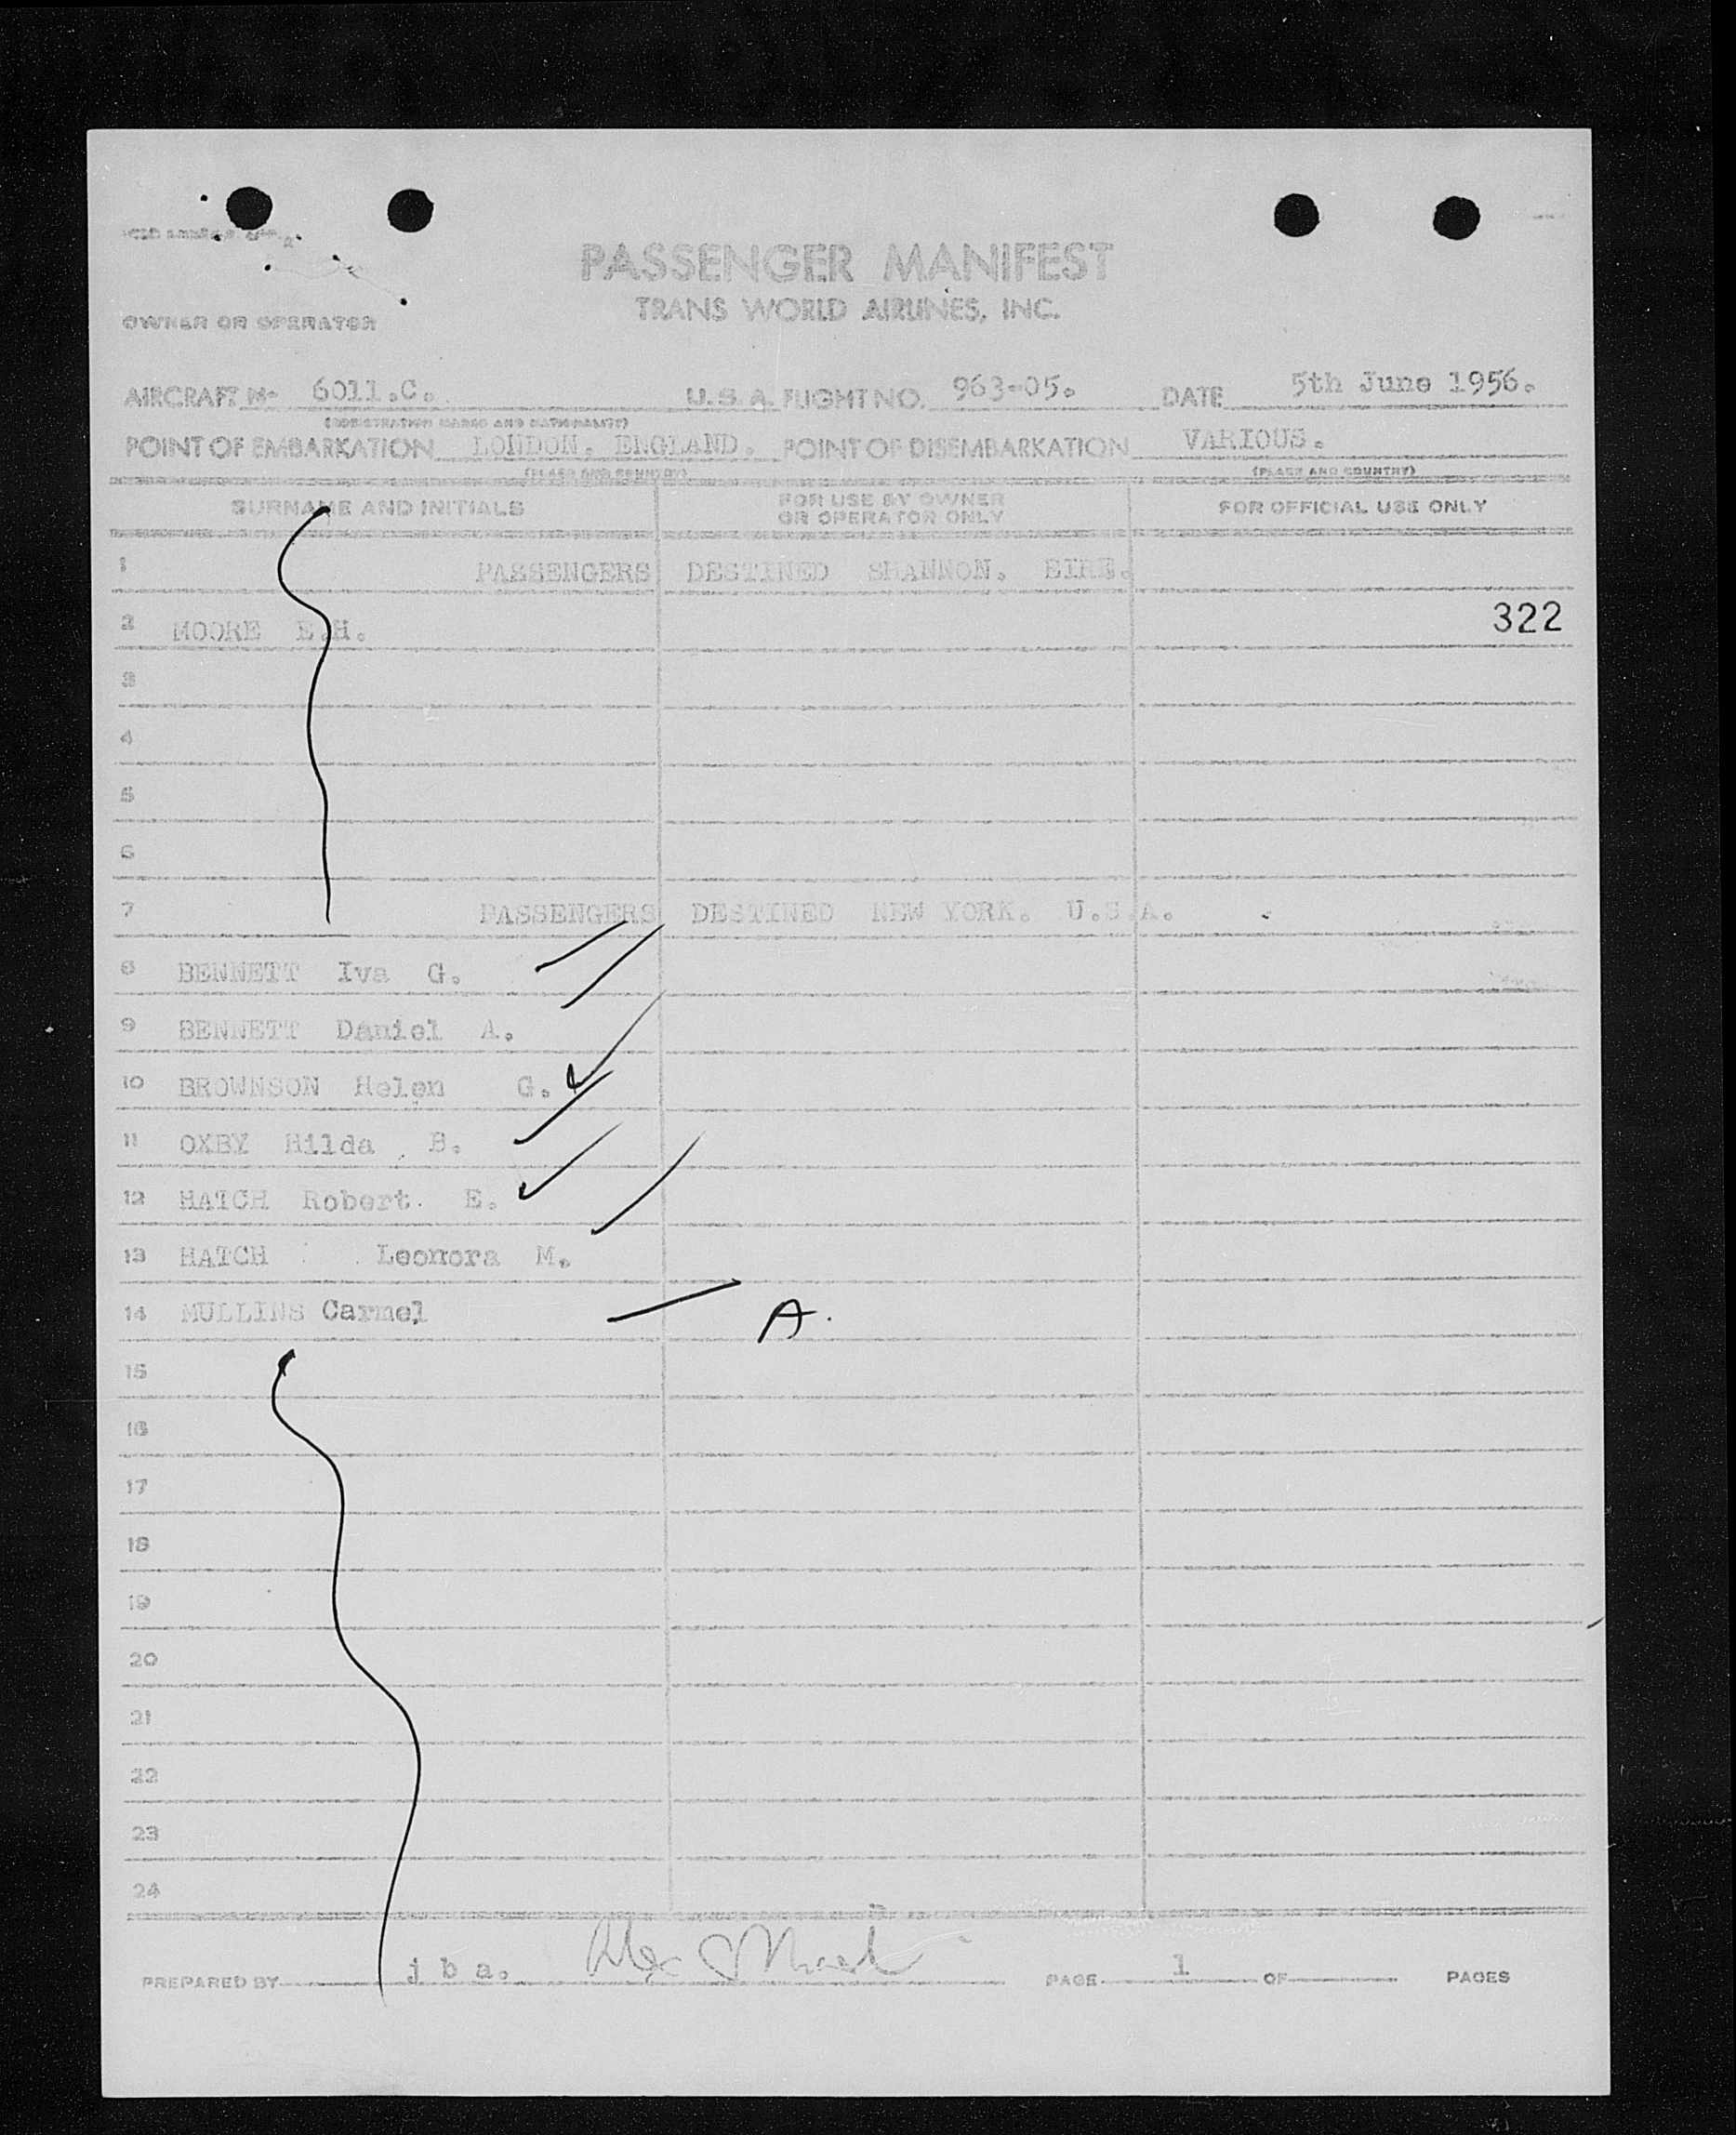 PASSENGER MANIFEST
TRANS WORLD AIRLINES, INC.
OWNER OR OPERATOR
AIRCRAFT No 6011.C. U. S. A. FLIGHT NO. 963-05. DATE 5th June 1956.
(REGISTRATION MARKS AND NATIONALITY)
POINT OF EMBARKATION LONDON. ENGLAND. POINT OF DISEMBARKATION VARIOUS.
(PLACE AND COUNTRY) (PLACE AND COUNTRY)
SURNAME AND INITIALS FOR USE BY OWNER OR OPERATOR ONLY FOR OFFICIAL USE ONLY
1 PASSENGERS DESTINED SHANNON. EIRE.
2 MOORE E.H. 322
3
4
5
6
7 PASSENGERS DESTINED NEW YORK. U.S.A.
8 BENNETT Iva G.
9 BENNETT Daniel A.
10 BROWNSON Helen G.
11 OXBY Hilda B.
12 HATCH Robert. E.
13 HATCH Leonora M.
14 MULLINS Carmel A.
15
16
17
18
19
20
21
22
23
24
PREPARED BY j b a. PAGE 1 OF PAGES